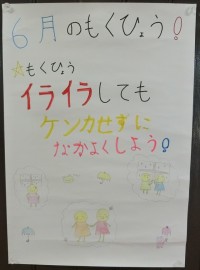 6月のもくひょう!
☆もくひょう
イライラしても
ケンカせずに
なかよくしよう!